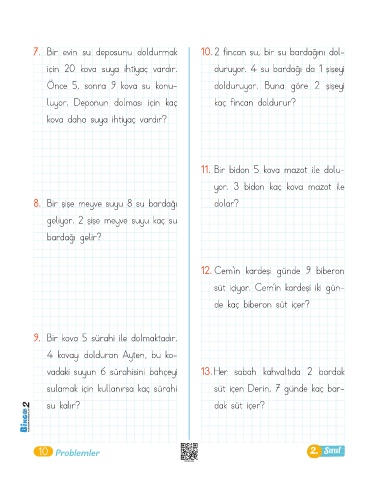 7. Bir evin su deposunu doldurmak
için 20 kova suya ihtiyaç vardır.
Önce 5, sonra 9 kova su konu-
luyor. Deponun dolması için kaç
kova daha suya ihtiyaç vardır?
8. Bir şişe meyve suyu 8 su bardağı
geliyor. 2 şişe meyve suyu kaç su
bardağı gelir?
9. Bir kova 5 sürahi ile dolmaktadır.
4 kovayı dolduran Ayten, bu ko-
vadaki suyun 6 sürahisini bahçeyi
sulamak için kullanırsa kaç sürahi
su kalır?
10. 2 fincan su, bir su bardağını dol-
duruyor. 4 su bardağı da 1 şişeyi
dolduruyor. Buna göre 2 şişeyi
kaç fincan doldurur?
11. Bir bidon 5 kova mazot ile dolu-
yor. 3 bidon kaç kova mazot ile
dolar?
12. Cem'in kardeşi günde 9 biberon
süt içiyor. Cem'in kardeşi iki gün-
de kaç biberon süt içer?
13. Her sabah kahvaltıda 2 bardak
süt içen Derin, 7 günde kaç bar-
dak süt içer?
10 Problemler
2. Sınıf